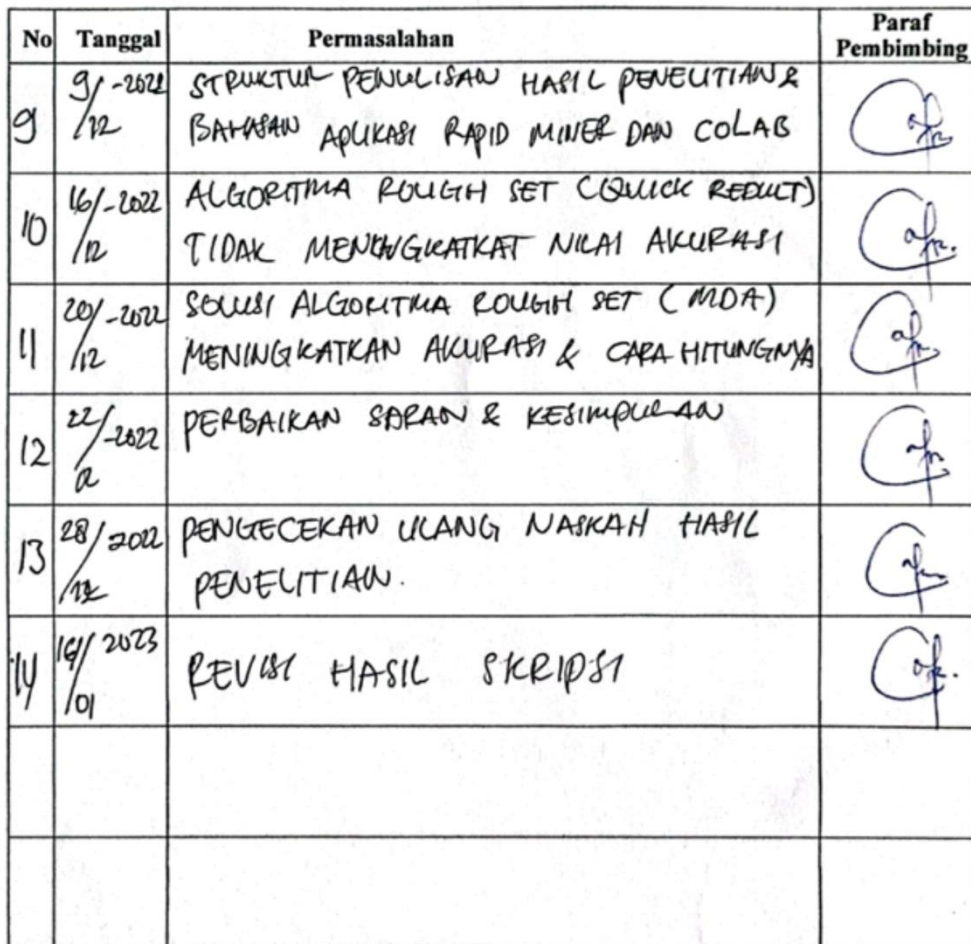 No Tanggal Permasalahan Paraf Pembimbing
9 9/12-2022 STRUKTUR PENULISAN HASIL PENELITIAN &
BAHASAN APLIKASI RAPID MINER DAN COLAB
10 16/12-2022 ALGORITMA ROUGH SET (QUICK REDUCT)
TIDAK MENINGKATKAT NILAI AKURASI
11 20/12-2022 SOLUSI ALGORITMA ROUGH SET (MDA)
MENINGKATKAN AKURASI & CARA HITUNGNYA
12 22/12-2022 PERBAIKAN SARAN & KESIMPULAN
13 28/12 2022 PENGECEKAN ULANG NASKAH HASIL
PENELITIAN.
14 /01 2023 REVISI HASIL SKRIPSI